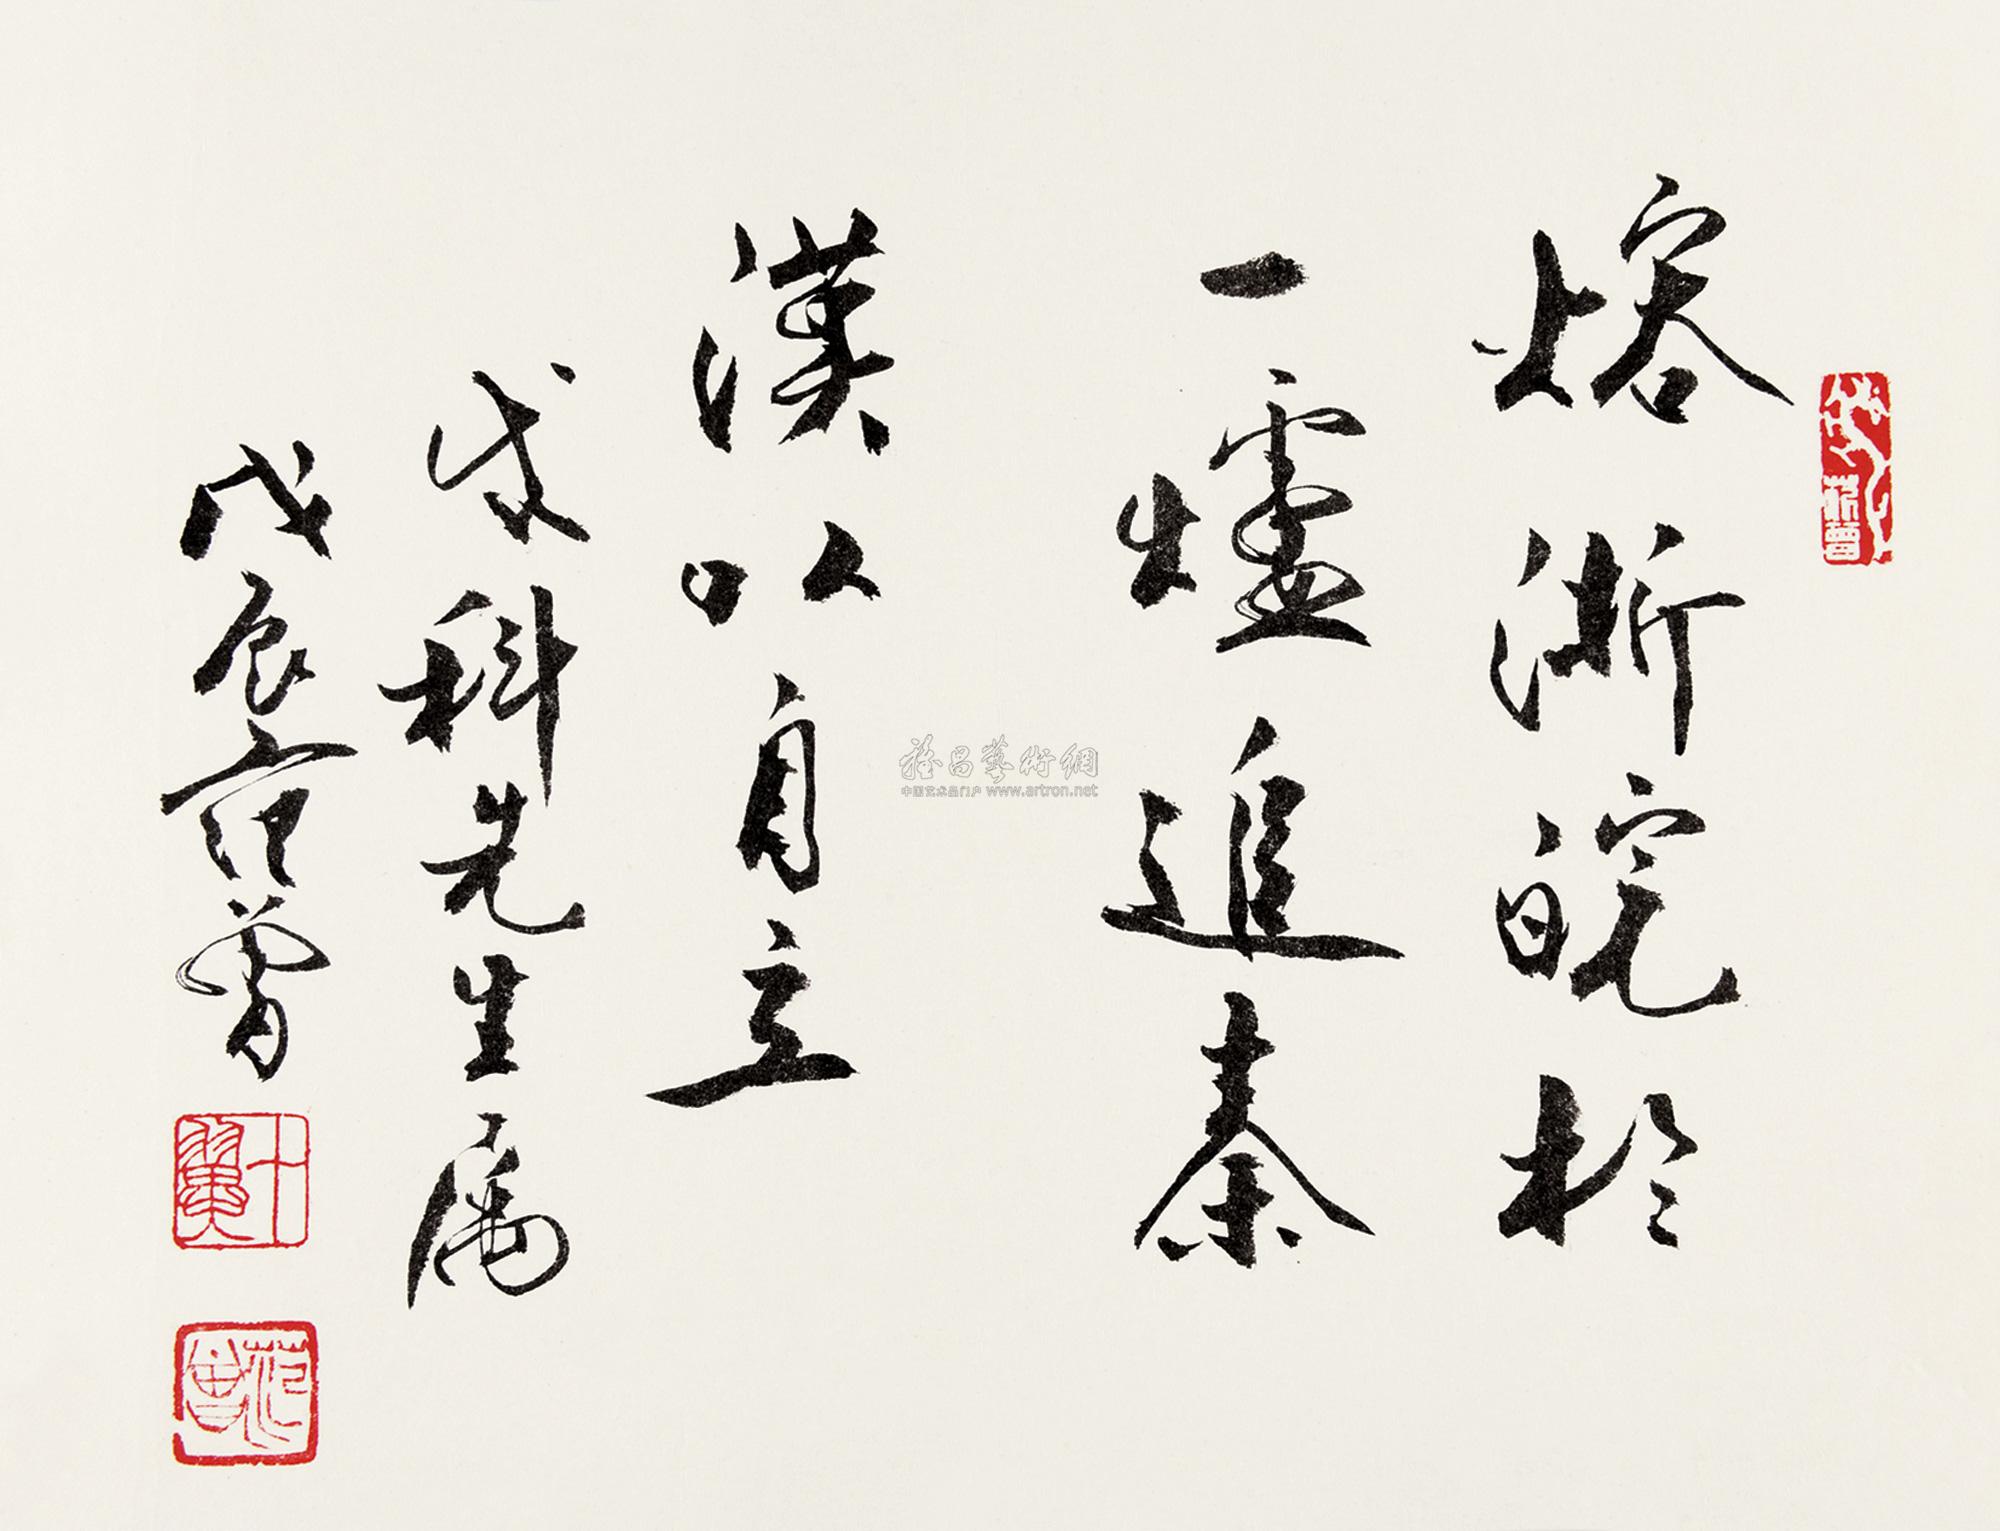 熔浙皖於
一爐追秦
漢以自立
成科先生屬
戊辰范曾
十翼
范曾
雅昌藝術網
中国艺术品门户 www.artron.net